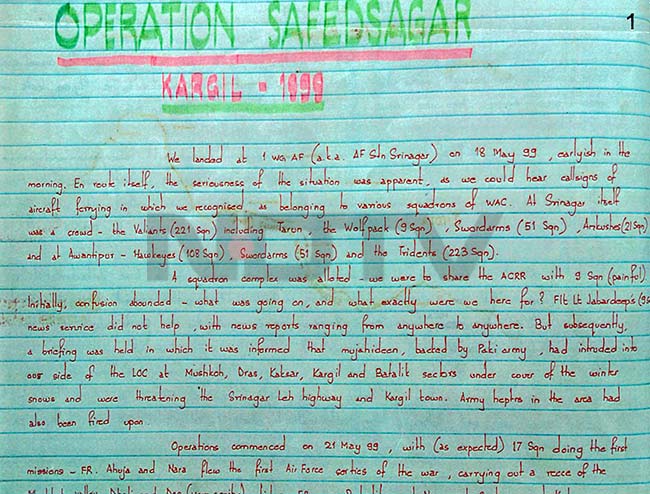 OPERATION SAFEDSAGAR
1
KARGIL - 1999
We landed at 1 WG AF (a.k.a. AF Stn Srinagar) on 18 May 99, earlyish in the
morning. En route itself, the seriousness of the situation was apparent, as we could hear callsigns of
aircraft ferrying in which we recognised as belonging to various squadrons of WAC. At Srinagar itself
was a crowd - the Valiants (221 Sqn) including Tarun, the Wolfpack (9 Sqn), Swordarms (51 Sqn), Ankushes (21 Sqn)
and at Awantipur - Hawkeyes (108 Sqn), Swordarms (51 Sqn) and the Tridents (223 Sqn).
NDTV
A squadron complex was alloted - we were to share the ACRR with 9 Sqn (painful)
Initially, confusion abounded - what was going on, and what exactly were we here for? Flt Lt Jabardeep's (9S
news service did not help, with news reports ranging from anywhere to anywhere. But subsequently,
a briefing was held in which it was informed that mujahideen, backed by Paki army, had intruded into
our side of the LOC at Mushkoh, Dras, Kaksar, Kargil and Batalik sectors under cover of the winter
snows and were threatening the Srinagar Leh highway and Kargil town. Army heptrs in the area had
also been fired upon.
Operations commenced on 21 May 99, with (as expected) 17 Sqn doing the first
missions - FR. Ahuja and Nara flew the first Air Force sorties of the war, carrying out a recce of the